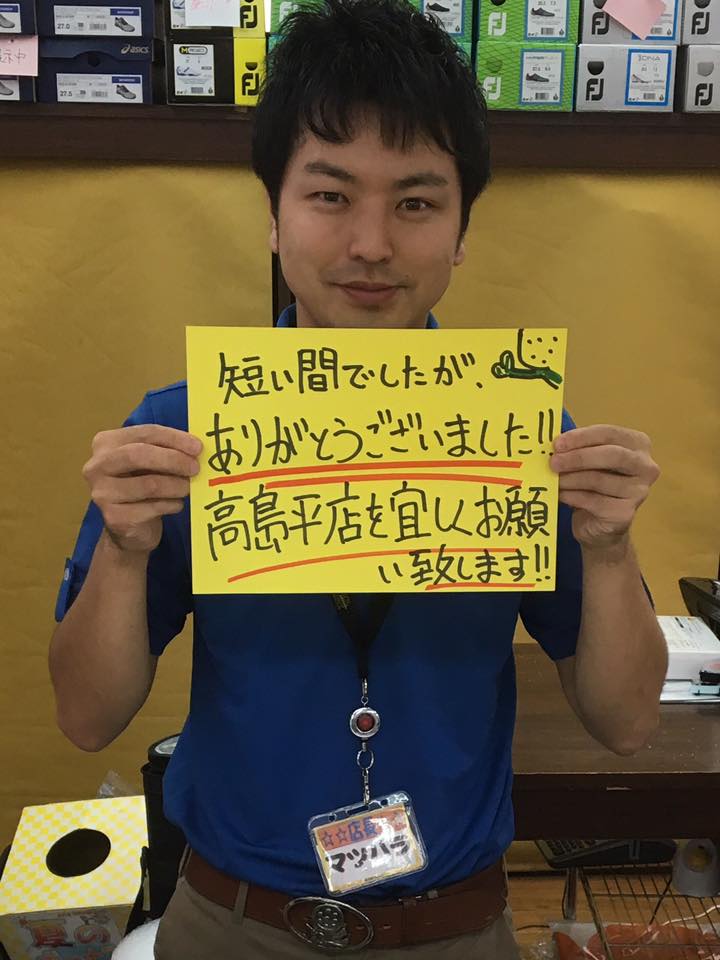 27.0
asics
27.5
示中
FJ
FJ
DNA
FJ
短い間でしたが、
ありがとうございました!!
高島平店を宜しくお願
い致します!!
☆☆店長
マツバラ
夏の